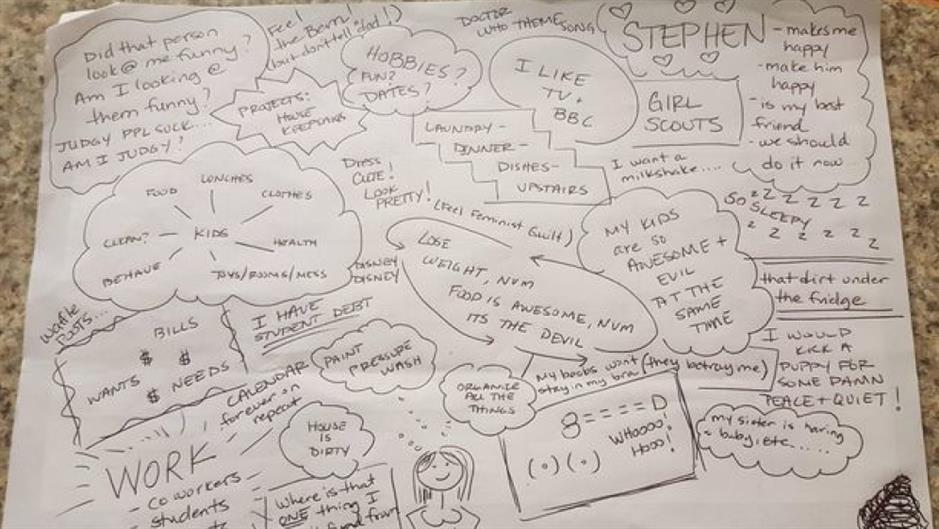 Did that person
look @ me funny?
Am I looking @
them funny?
JUDGY PPL SUCK...
AM I JUDGY?
Feel
the Bern!
but don't tell dad!)
PROJECTS:
HOUSE
KEEPSAKES
HOBBIES?
(FUN?
DATES?
DOCTOR
WHO THEME SONG
I LIKE
TV +
BBC
STEPHEN
- makes me
happy
- make him
happy
- is my best
friend
- we should
do it now...
GIRL
SCOUTS
LAUNDRY -
DINNER -
DISHES -
UPSTAIRS
I want a
milkshake....
SO SLEEPY
z z z z z z
z z z z z
FOOD
LUNCHES
CLOTHES
CLEAN?
KIDS
HEALTH
BEHAVE
TOYS/ROOMS/MESS
Dress
CUTE!
LOOK
PRETTY!
(Feel Feminist Guilt)
DISNEY
DISNEY
LOSE
WEIGHT, NUM
FOOD IS AWESOME, NUM
ITS THE DEVIL
MY KIDS
are so
AWESOME +
EVIL
AT THE
SAME
TIME
that dirt under
the fridge
I WOULD
KICK A
PUPPY FOR
SOME DAMN
PEACE + QUIET!
BILLS
$ $
WANTS $ NEEDS
I HAVE
STUDENT DEBT
CALENDAR
forever on
repeat
PAINT
PRESSURE
WASH
ORGANIZE
ALL THE
THINGS
My boobs won't (they betray me)
stay in my bra
8====D
WHOOOO!
HOOO!
(.)(.)
my sister is having
a baby, etc.....
HOUSE
IS
DIRTY
WORK
- coworkers
students
Where is that
ONE thing I